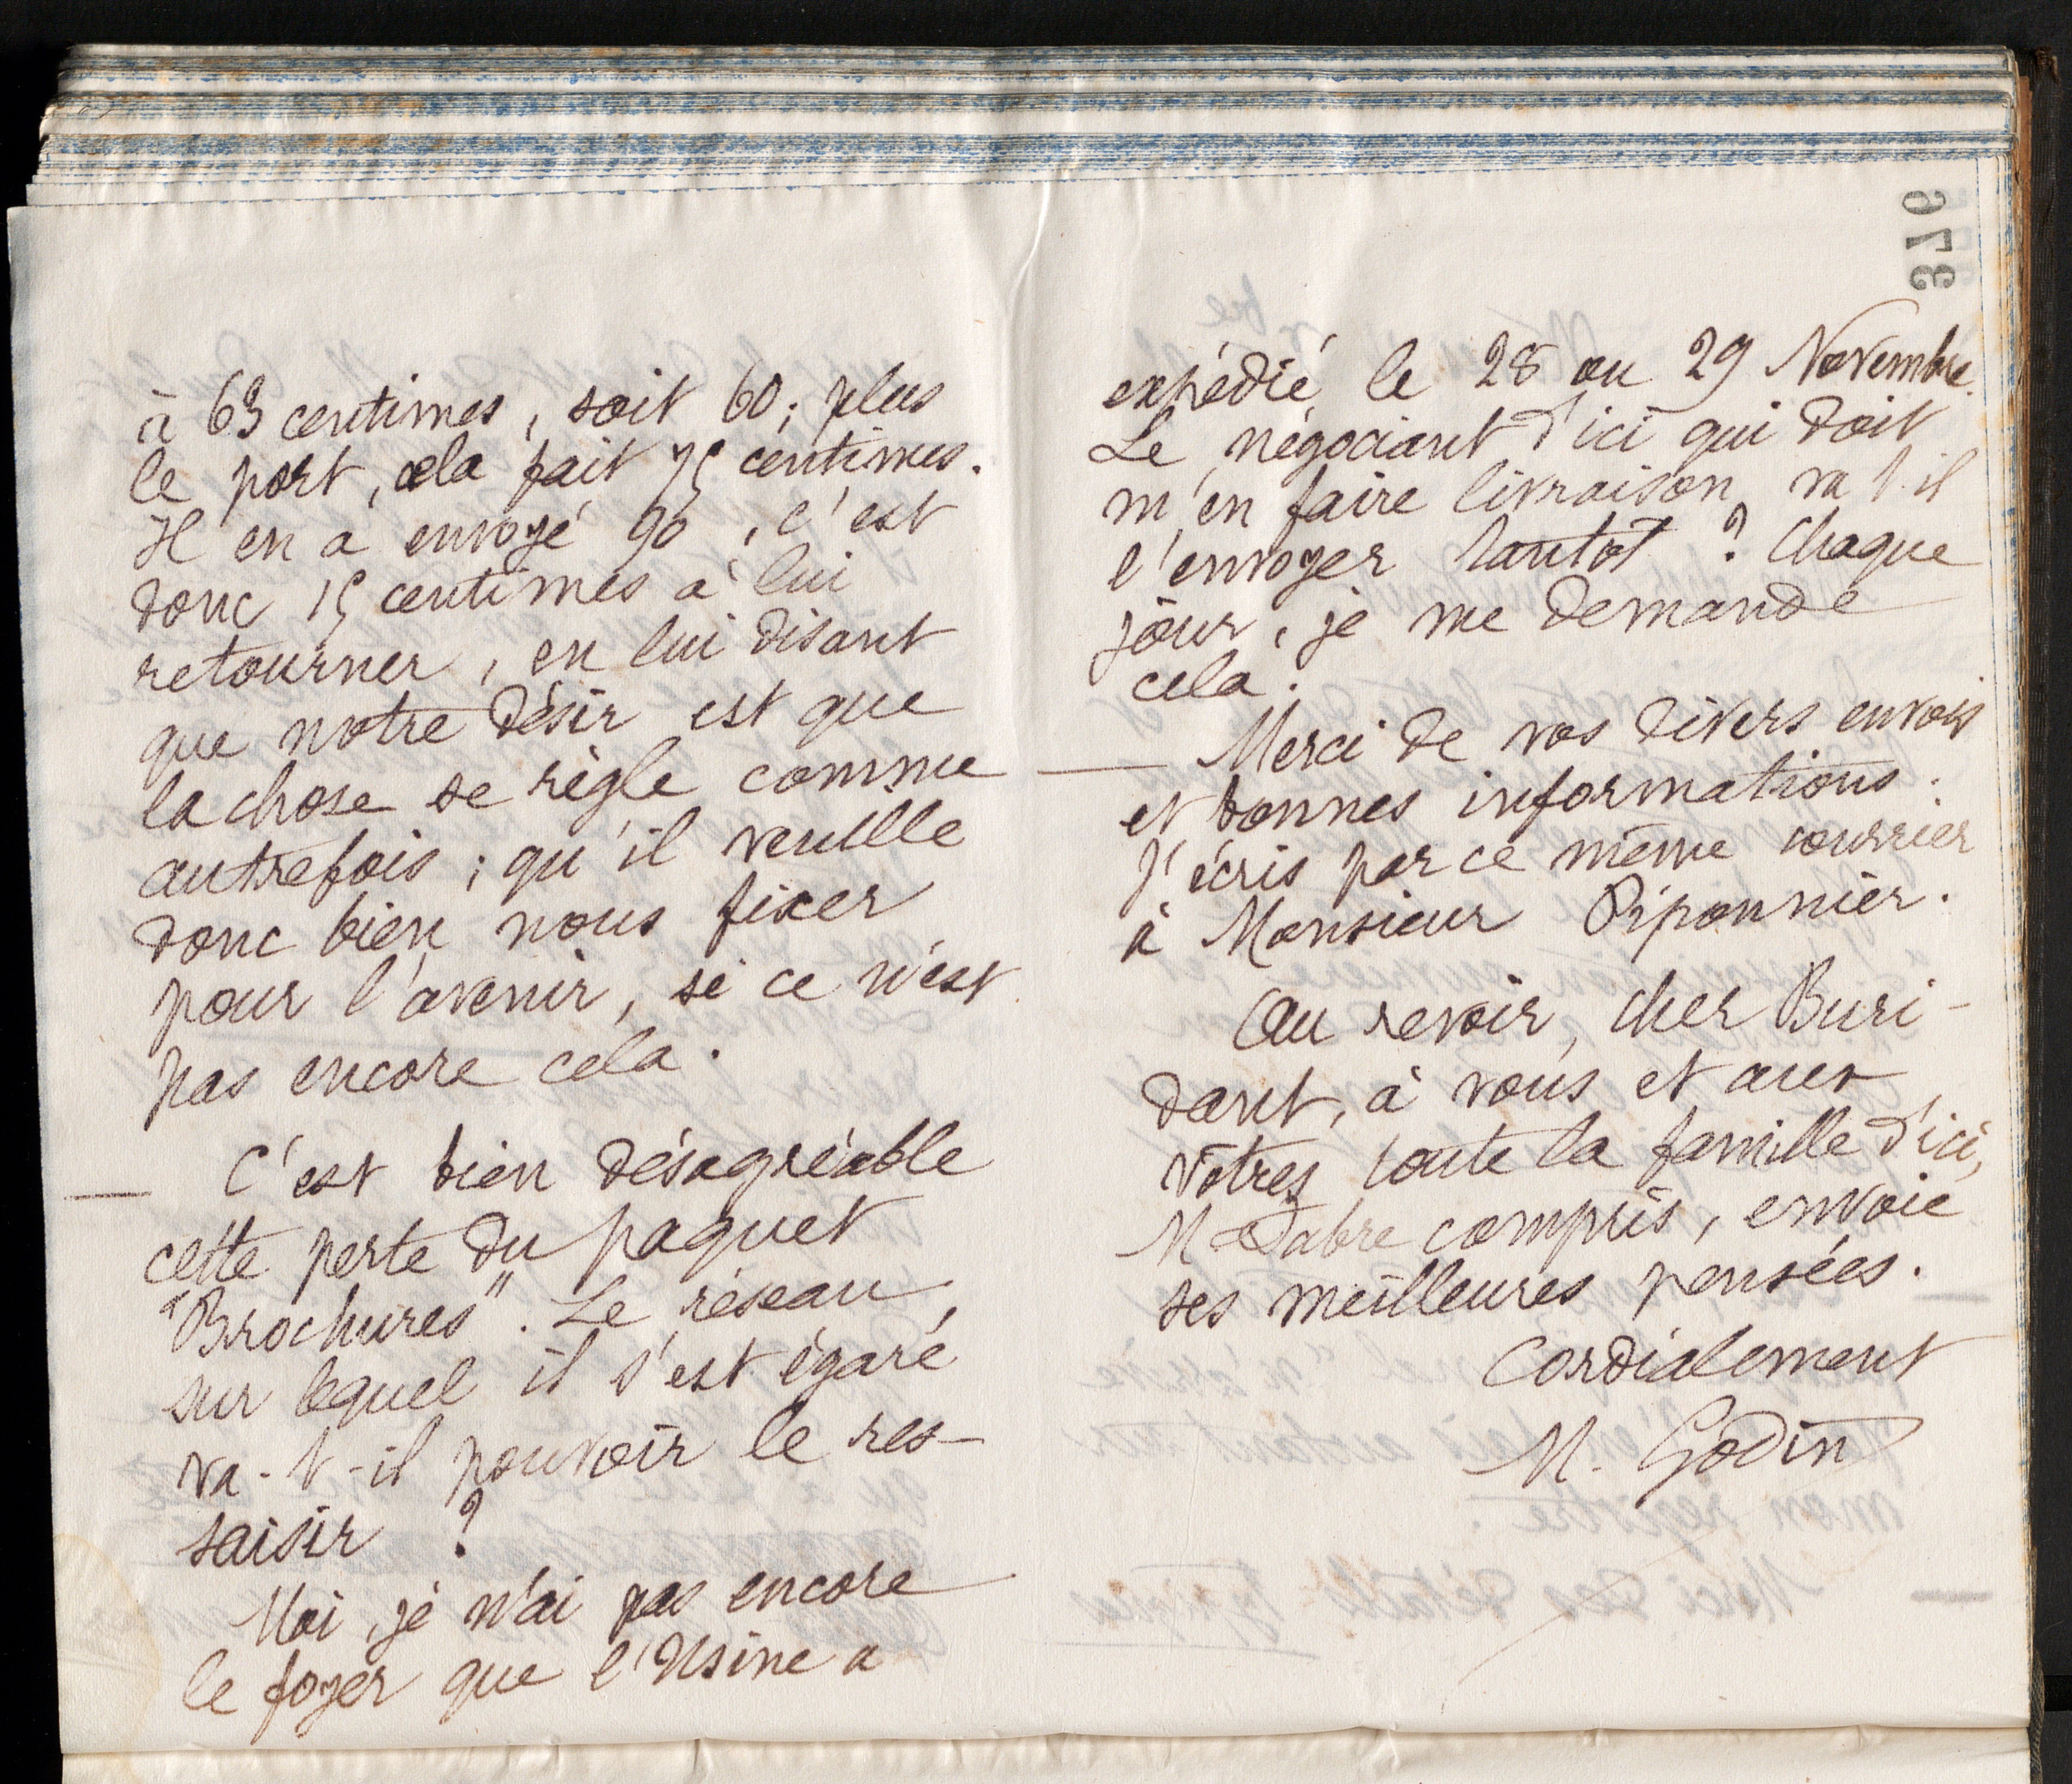 à 63 centimes, soit 60; plus
le port, cela fait 75 centimes.
Il en a envoyé 90, c'est
donc 15 centimes à lui
retourner, en lui disant
que notre désir est que
la chose se règle comme
autrefois; qu'il veuille
donc bien nous fixer
pour l'avenir, si ce n'est
pas encore cela.
— C'est bien désagréable
cette perte du paquet
"Brochures". Le réseau,
sur lequel il s'est égaré,
va-t-il pouvoir le res-
saisir ?
Moi, je n'ai pas encore
le foyer que l'Usine a
376
expédié le 28 ou 29 Novembre.
Le négociant d'ici qui doit
m'en faire livraison, va t-il
l'envoyer tantôt ? Chaque
jour, je me demande
cela.
— Merci de vos divers envois
et bonnes informations.
J'écris par ce même courrier
à Monsieur Piponnier.
Au revoir, cher Buri-
dant, à vous et aux
vôtres toute la famille d'ici,
M Fabre compris, envoie
ses meilleures pensées.
Cordialement
M. Godin